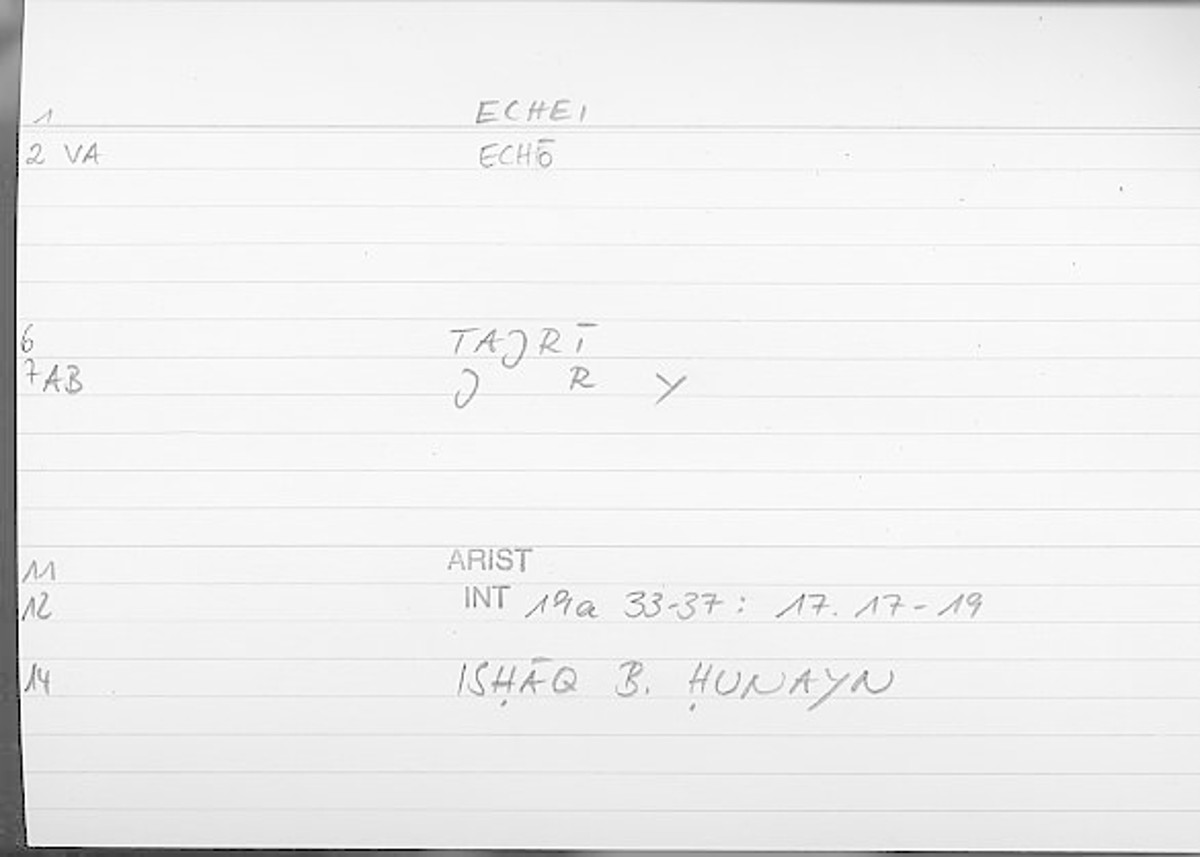 1 ECHEI
2 VA ECHŌ
6 TAJRĪ
7 AB J R Y
11 ARIST
12 INT 19a 33-37: 17. 17-19
14 ISḤĀQ B. ḤUNAYN